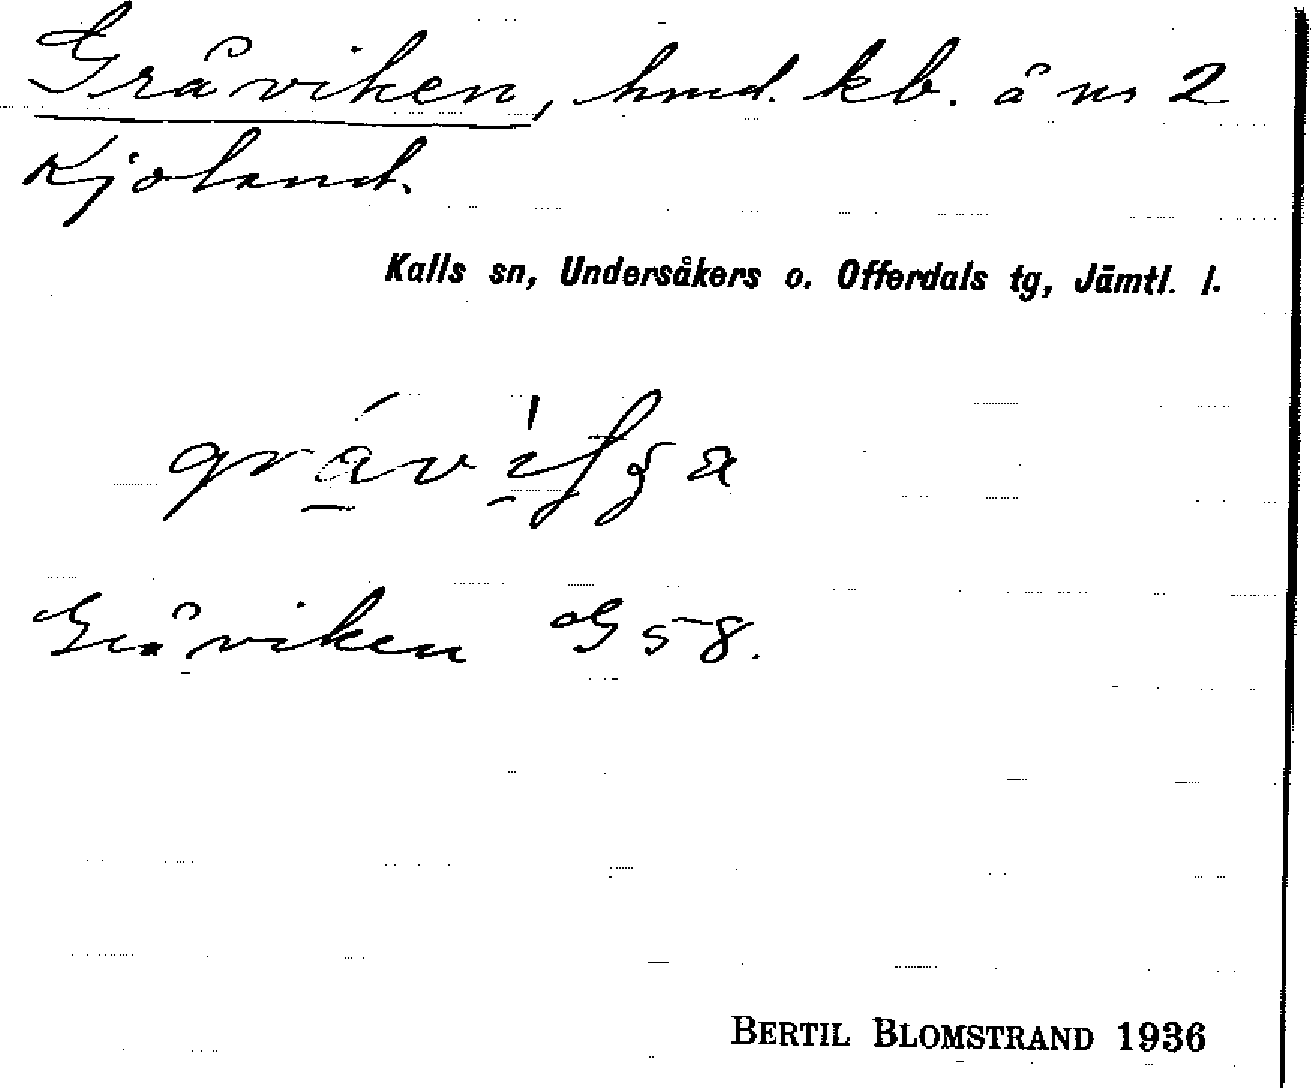 Gråviken, hmd. kb. å nr 2
Kjoland.
Kalls sn, Undersåkers o. Offerdals tg, Jämtl. l.
Gråviken G 58.
BERTIL BLOMSTRAND 1936